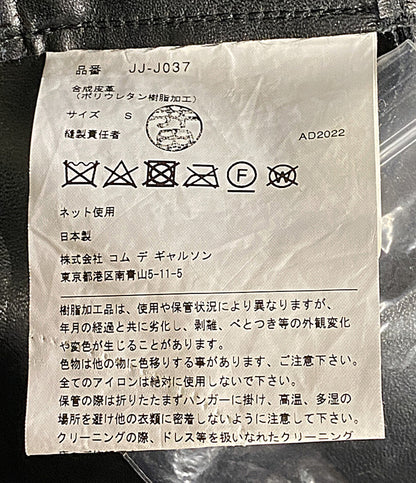 品番 JJ-J037
合成皮革
(ポリウレタン樹脂加工)
サイズ S
縫製責任者
AD2022
F W
ネット使用
日本製
株式会社 コム デ ギャルソン
東京都港区南青山5-11-5
樹脂加工品は、使用や保管状況により異なりますが、
年月の経過と共に劣化し、剥離、べとつき等の外観変化
や変色が生じることがあります。
色物は他の物に色移りする事があります、ご注意下さい。
全てのアイロンは絶対に使用しないで下さい。
保管の際は折りたたまずハンガーに掛け、高温、多湿の
場所を避け他の衣類に密着しないように注意して下さい。
クリーニングの際、ドレス等を扱いなれたクリーニング